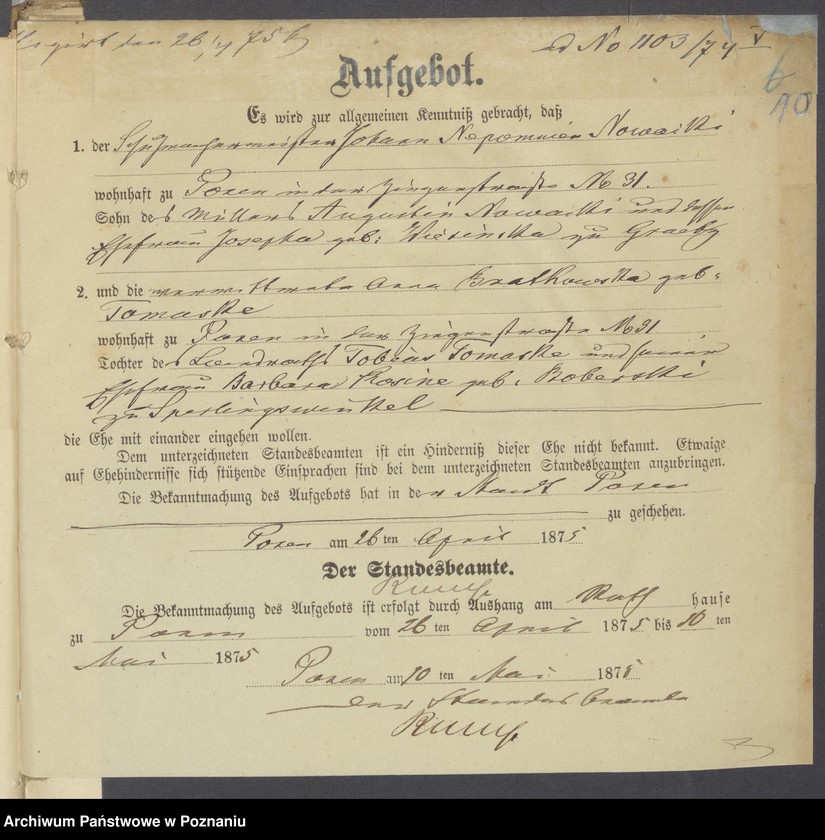 den 26/4 75
ad No 1103/74 V
6
10
Aufgebot.
Es wird zur allgemeinen Kenntniß gebracht, daß
1. der Schuhmachermeister Johann Nepomucen Nowacki
wohnhaft zu Posen in der Ziegenstraße No 31.
Sohn des Müllers Augustin Nowacki und dessen
Ehefrau Josepha geb:
2. und die verwittwete Anna Bratkowska geb:
Tomaske
wohnhaft zu Posen in der Ziegenstraße No 31
Tochter des Tobias Tomaske und seiner
Ehefrau Barbara Rosine geb: Boberski
zu Sperlingswinkel
die Ehe mit einander eingehen wollen.
Dem unterzeichneten Standesbeamten ist ein Hinderniß dieser Ehe nicht bekannt. Etwaige
auf Ehehindernisse sich stützende Einsprachen sind bei dem unterzeichneten Standesbeamten anzubringen.
Die Bekanntmachung des Aufgebots hat in der Stadt Posen
zu geschehen.
Posen am 26 ten April 1875
Der Standesbeamte.
Die Bekanntmachung des Aufgebots ist erfolgt durch Aushang am Rath hause
zu Posen vom 26 ten April 1875 bis 10 ten
Mai 1875
Posen am 10 ten Mai 1875
Der Standesbeamte
Archiwum Państwowe w Poznaniu